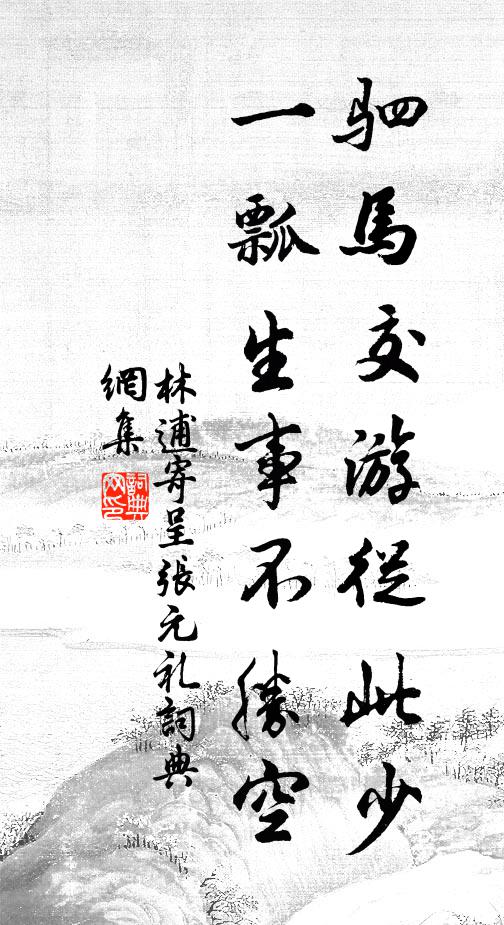 驷馬交游從此少
一瓢生事不勝空
林逋寄呈張元礼詞典
網集
詞典
网印